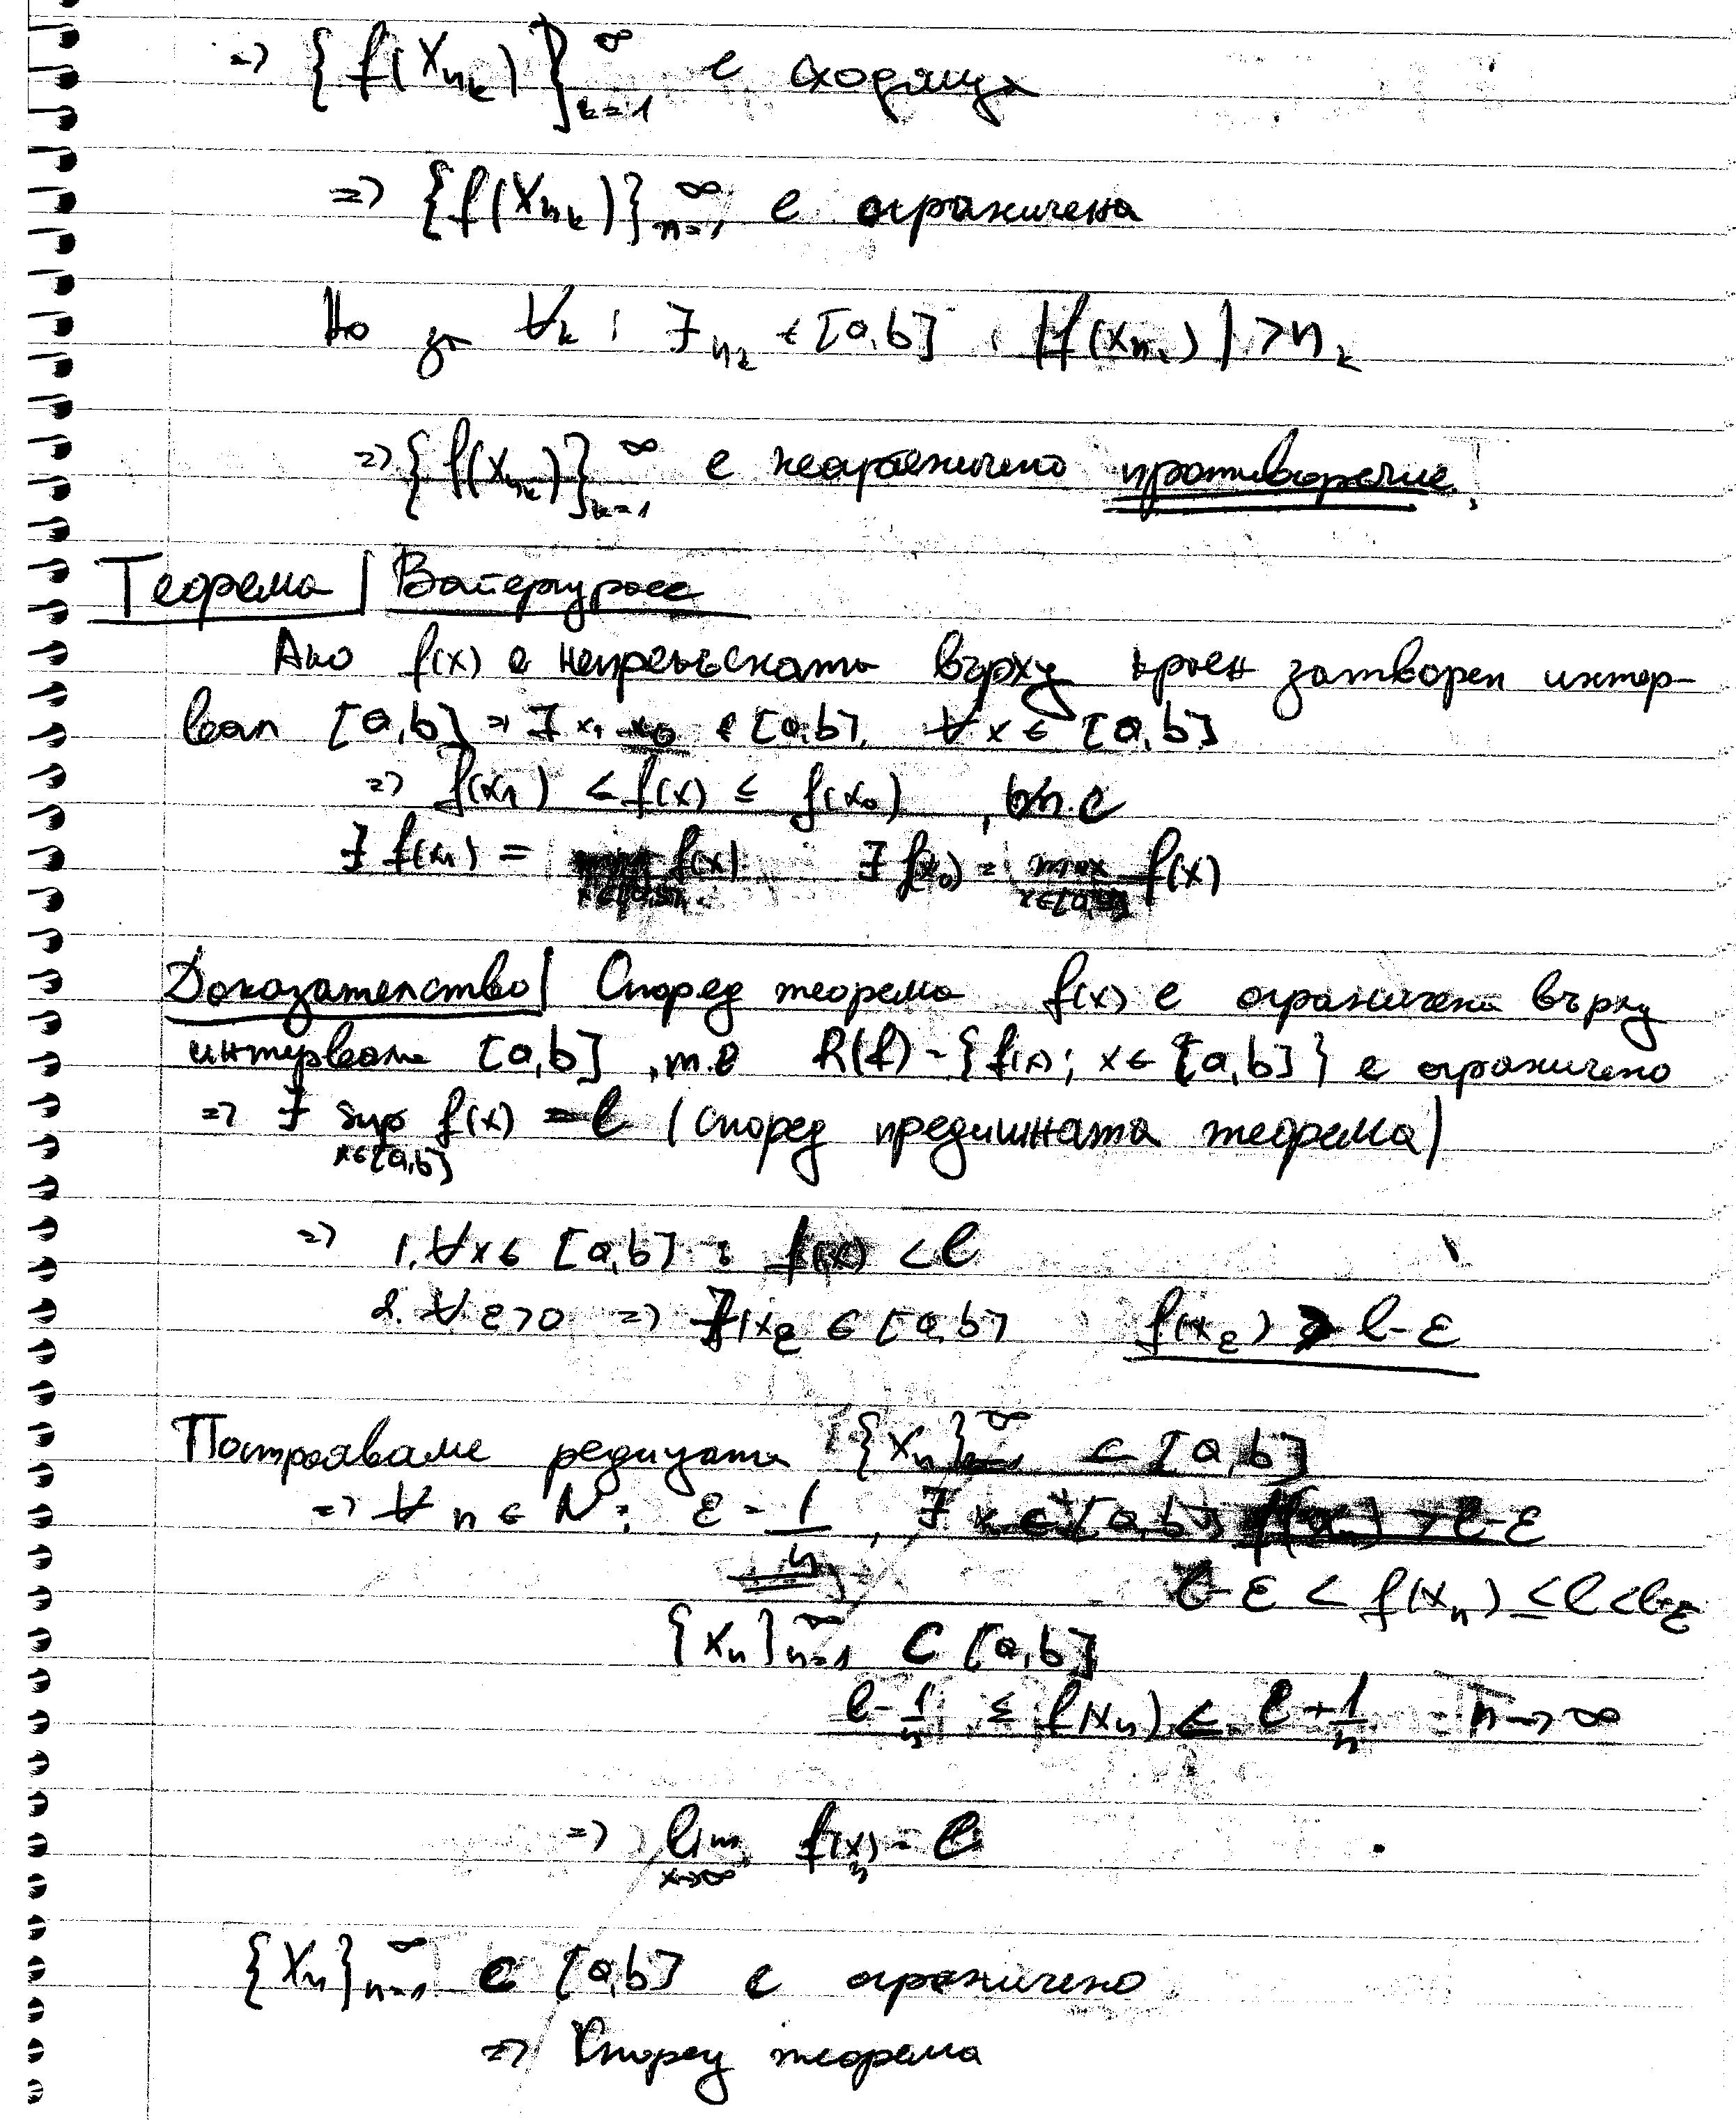 => {f(x_{n_k})}_{k=1}^∞ е сходяща
=> {f(x_{n_k})}_{n=1}^∞ е ограничена
Но за ∀k : ∃_{n_k} ∈ [a,b] : |f(x_{n_k})| > n_k
=> {f(x_{n_k})}_{k=1}^∞ е неограничено противоречие.
Теорема | Вайерщрас
Ако f(x) е непрекъсната върху краен затворен интер-
вал [a,b] => ∃ x_1 x_0 ∈ [a,b], ∀x ∈ [a,b]
=> f(x_1) ≤ f(x) ≤ f(x_0) , т.е
∃ f(x_1) = min_{x∈[a,b]} f(x) ∃ f(x_0) = max_{x∈[a,b]} f(x)
Доказателство | Според теорема f(x) е ограничена върху
интервала [a,b] , т.е R(f) = {f(x); x ∈ [a,b]} е ограничено
=> ∃ sup_{x∈[a,b]} f(x) = l (според предишната теорема)
=> 1. ∀x ∈ [a,b] : f(x) < l
2. ∀ε>0 => ∃ x_ε ∈ [a,b] f(x_ε) > l-ε
Построяваме редицата {x_n}_{n=1}^∞ ⊂ [a,b]
=> ∀ n ∈ N : ε = 1/n , ∃ x ∈ [a,b] f(x_n) > l-ε
l-ε < f(x_n) ≤ l < l+ε
{x_n}_{n=1}^∞ ⊂ [a,b]
l - 1/n ≤ f(x_n) ≤ l + 1/n n→∞
=> lim_{x→∞} f(x_n) = l
{x_n}_{n=1}^∞ ⊂ [a,b] е ограничено
=> Според теорема